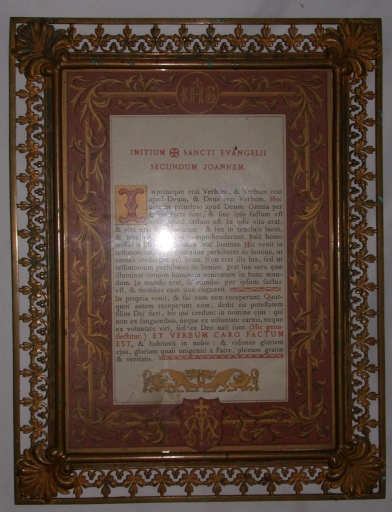 IHS
INITIUM ✠ SANCTI EVANGELII
SECUNDUM JOANNEM
In principio erat Verbum, & Verbum erat
apud Deum, & Deus erat Verbum. Hoc
erat in principio apud Deum. Omnia per
ipsum facta sunt, & sine ipso factum est
nihil quod factum est. In ipso vita erat,
& vita erat lux hominum: & lux in tenebris lucet,
& tenebræ eam non comprehenderunt. Fuit homo
missus a Deo, cui nomen erat Joannes. Hic venit in
testimonium, ut testimonium perhiberet de lumine, ut
omnes crederent per illum. Non erat ille lux, sed ut
testimonium perhiberet de lumine. Erat lux vera quæ
illuminat omnem hominem venientem in hunc mun-
dum. In mundo erat, & mundus per ipsum factus
est, & mundus eum non cognovit.
In propria venit, & sui eum non receperunt. Quot-
quot autem receperunt eum, dedit eis potestatem
filios Dei fieri, his qui credunt in nomine ejus: qui
non ex sanguinibus, neque ex voluntate carnis, neque
ex voluntate viri, sed ex Deo nati sunt. (Hic genu-
flectitur.) ET VERBUM CARO FACTUM
EST, & habitavit in nobis: & vidimus gloriam
ejus, gloriam quasi unigeniti a Patre, plenum gratiæ
& veritatis.